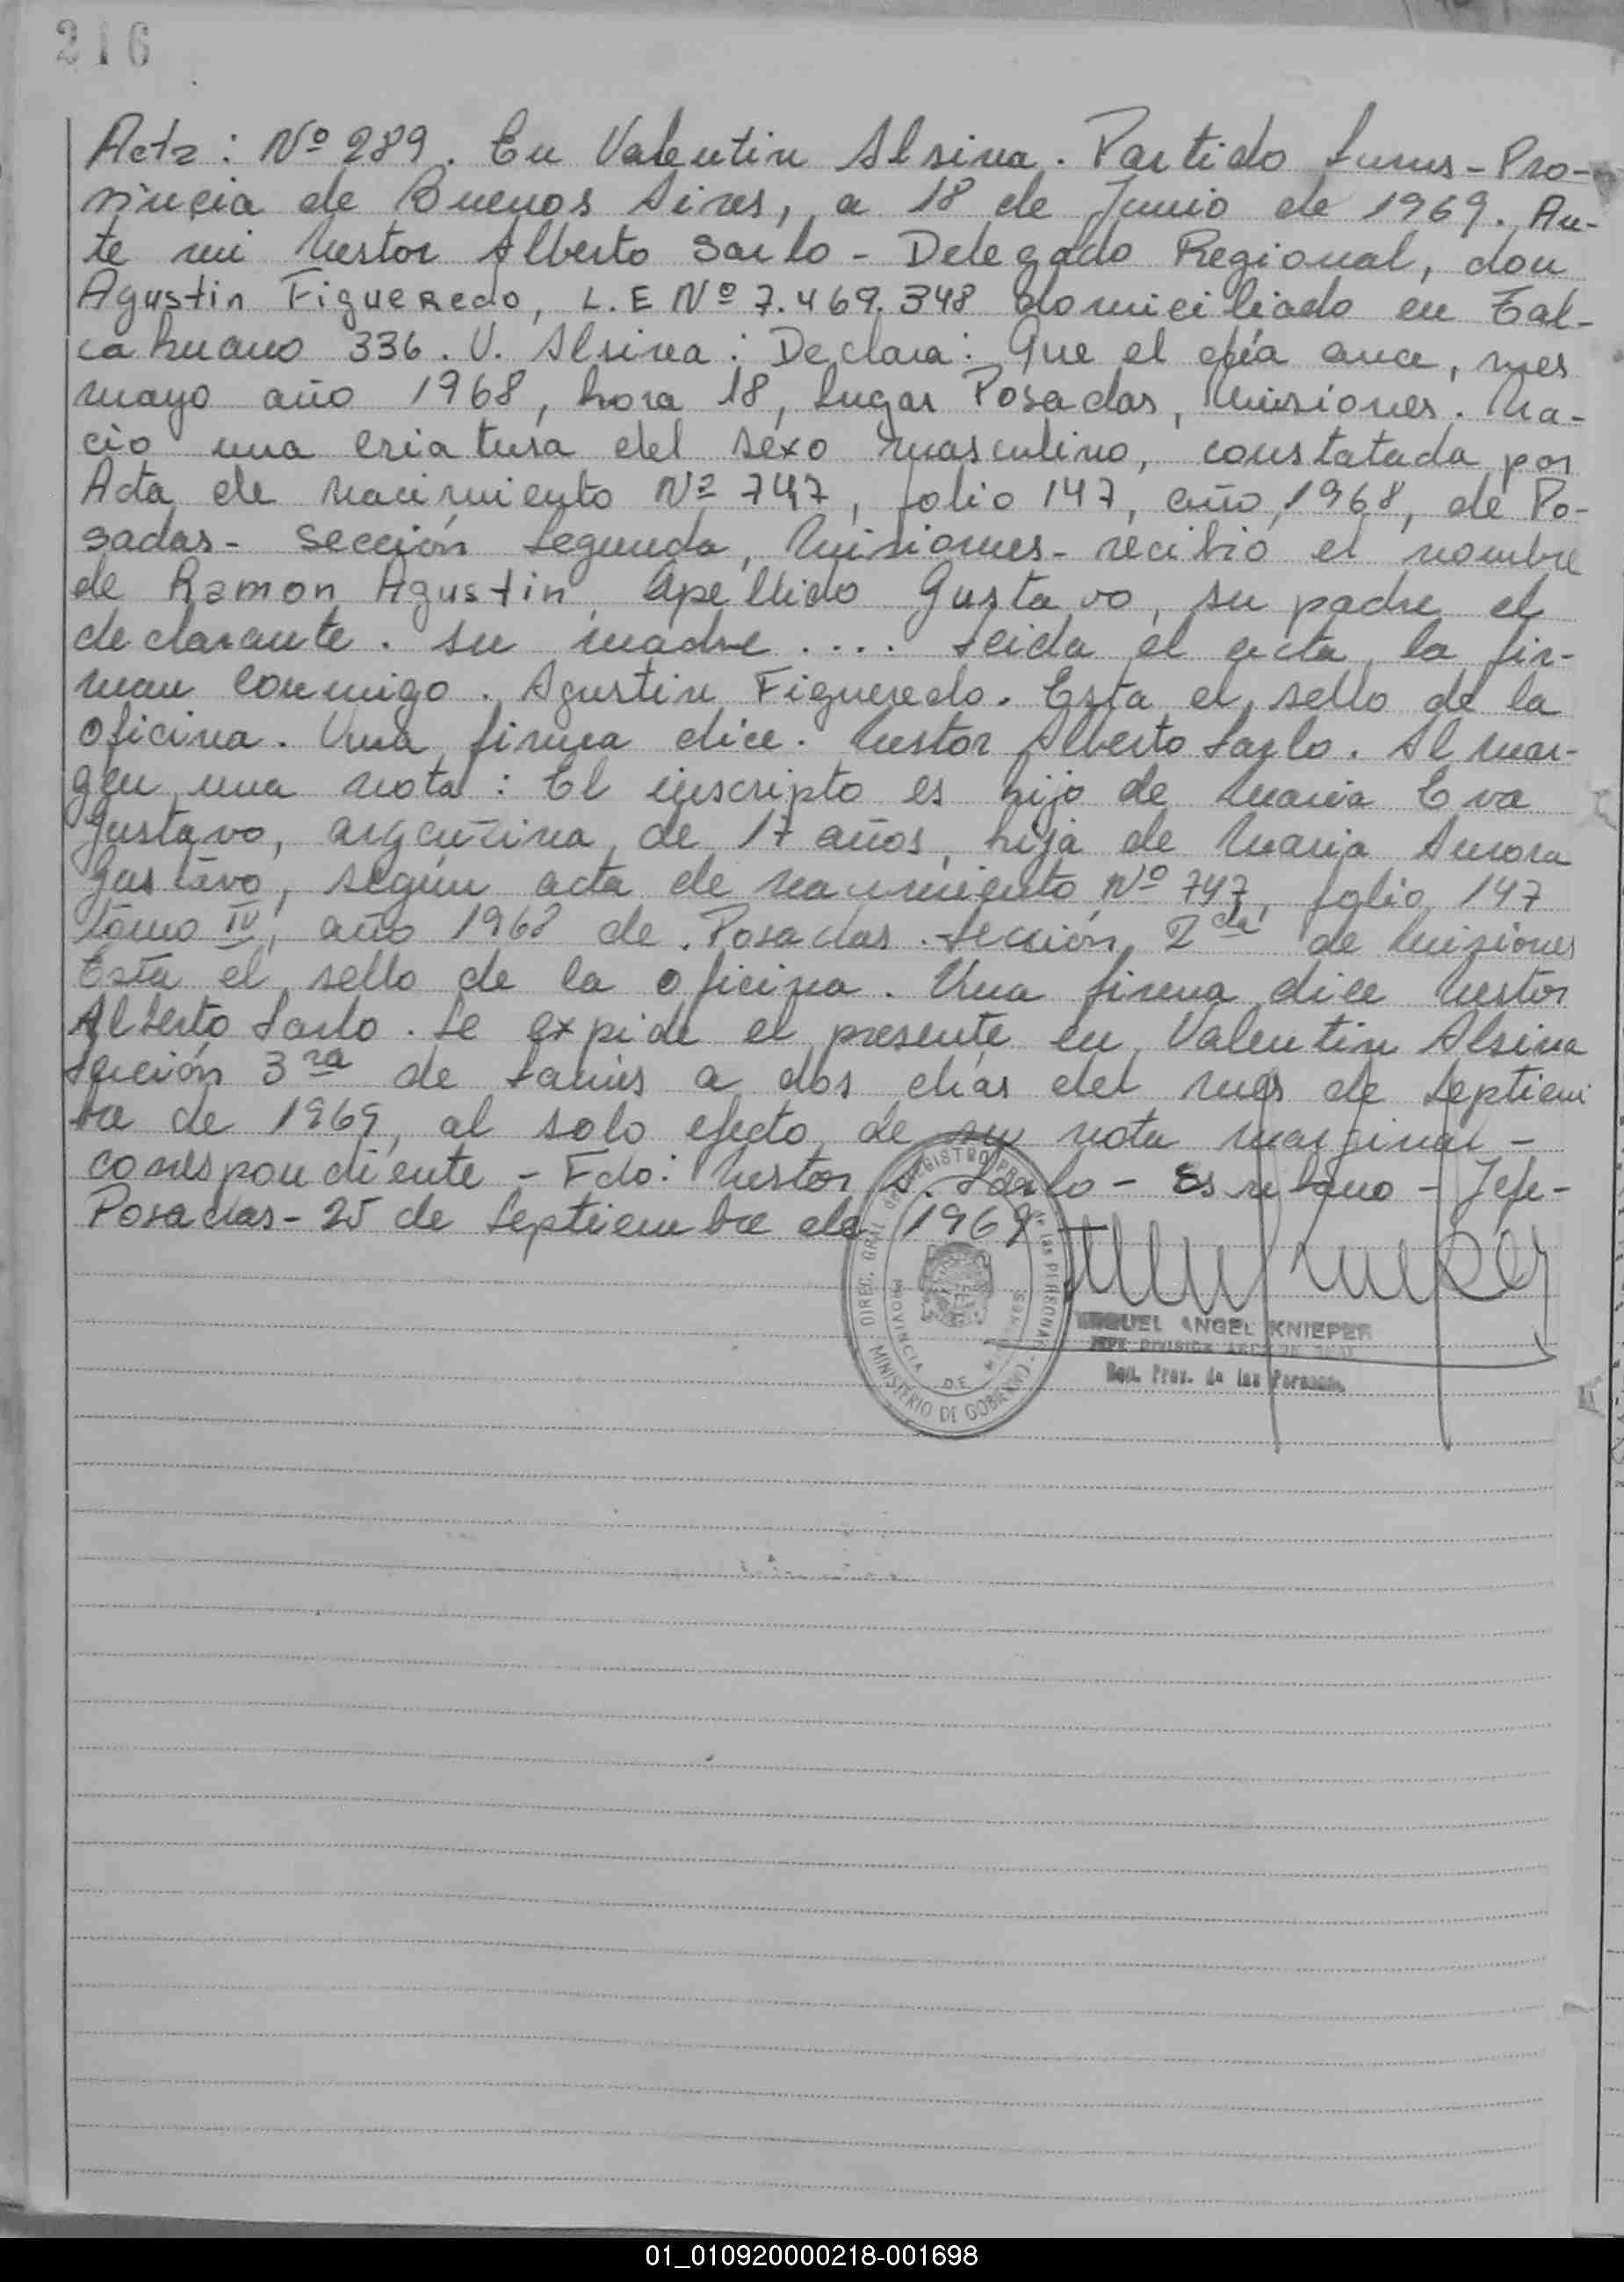 216
Acta: Nº 289. En Valentin Alsina. Partido Lanus - Pro-
vincia de Buenos Aires, a 18 de Junio de 1969. An-
te mi Nestor Alberto Sarlo - Delegado Regional, don
Agustin Figueredo, L.E Nº 7.469.348 domiciliado en Tal-
cahuano 336. V. Alsina: Declara: Que el día once, mes
mayo año 1968, hora 18, lugar Posadas, Misiones. Na-
cio una criatura del sexo masculino, constatada por
Acta de nacimiento Nº 747, folio 147, año 1968, de Po-
sadas - Sección Segunda, Misiones - recibió el nombre
de Ramon Agustin, Apellido Gustavo, su padre el
declarante. su madre .... Leida el acta, la fir-
man conmigo. Agustin Figueredo. Esta el sello de la
oficina. Una firma dice. Nestor Alberto Sarlo. Al mar-
gen una nota: El inscripto es hijo de Maria Eva
Gustavo, argentina, de 17 años, hija de Maria Aurora
Gustavo, según acta de nacimiento Nº 747, folio 147
tomo IV, año 1968 de Posadas. Sección 2da de Misiones
Esta el sello de la oficina. Una firma dice Nestor
Alberto Sarlo. Se expide el presente en Valentin Alsina
Sección 3ra de Lanús a dos días del mes de Septiem
bre de 1969, al solo efecto, de su nota marginal -
correspondiente - Fdo: Nestor A. Sarlo - Escribano - Jefe -
Posadas - 25 de Septiembre de 1969 -
DIREC. GRAL. del REGISTRO PROV. de las PERSONAS
PROVINCIA DE MISIONES
MINISTERIO DE GOBIERNO
MIGUEL ANGEL KNIEPER
JEFE DIVISION
Reg. Prov. de las Personas
01_010920000218-001698